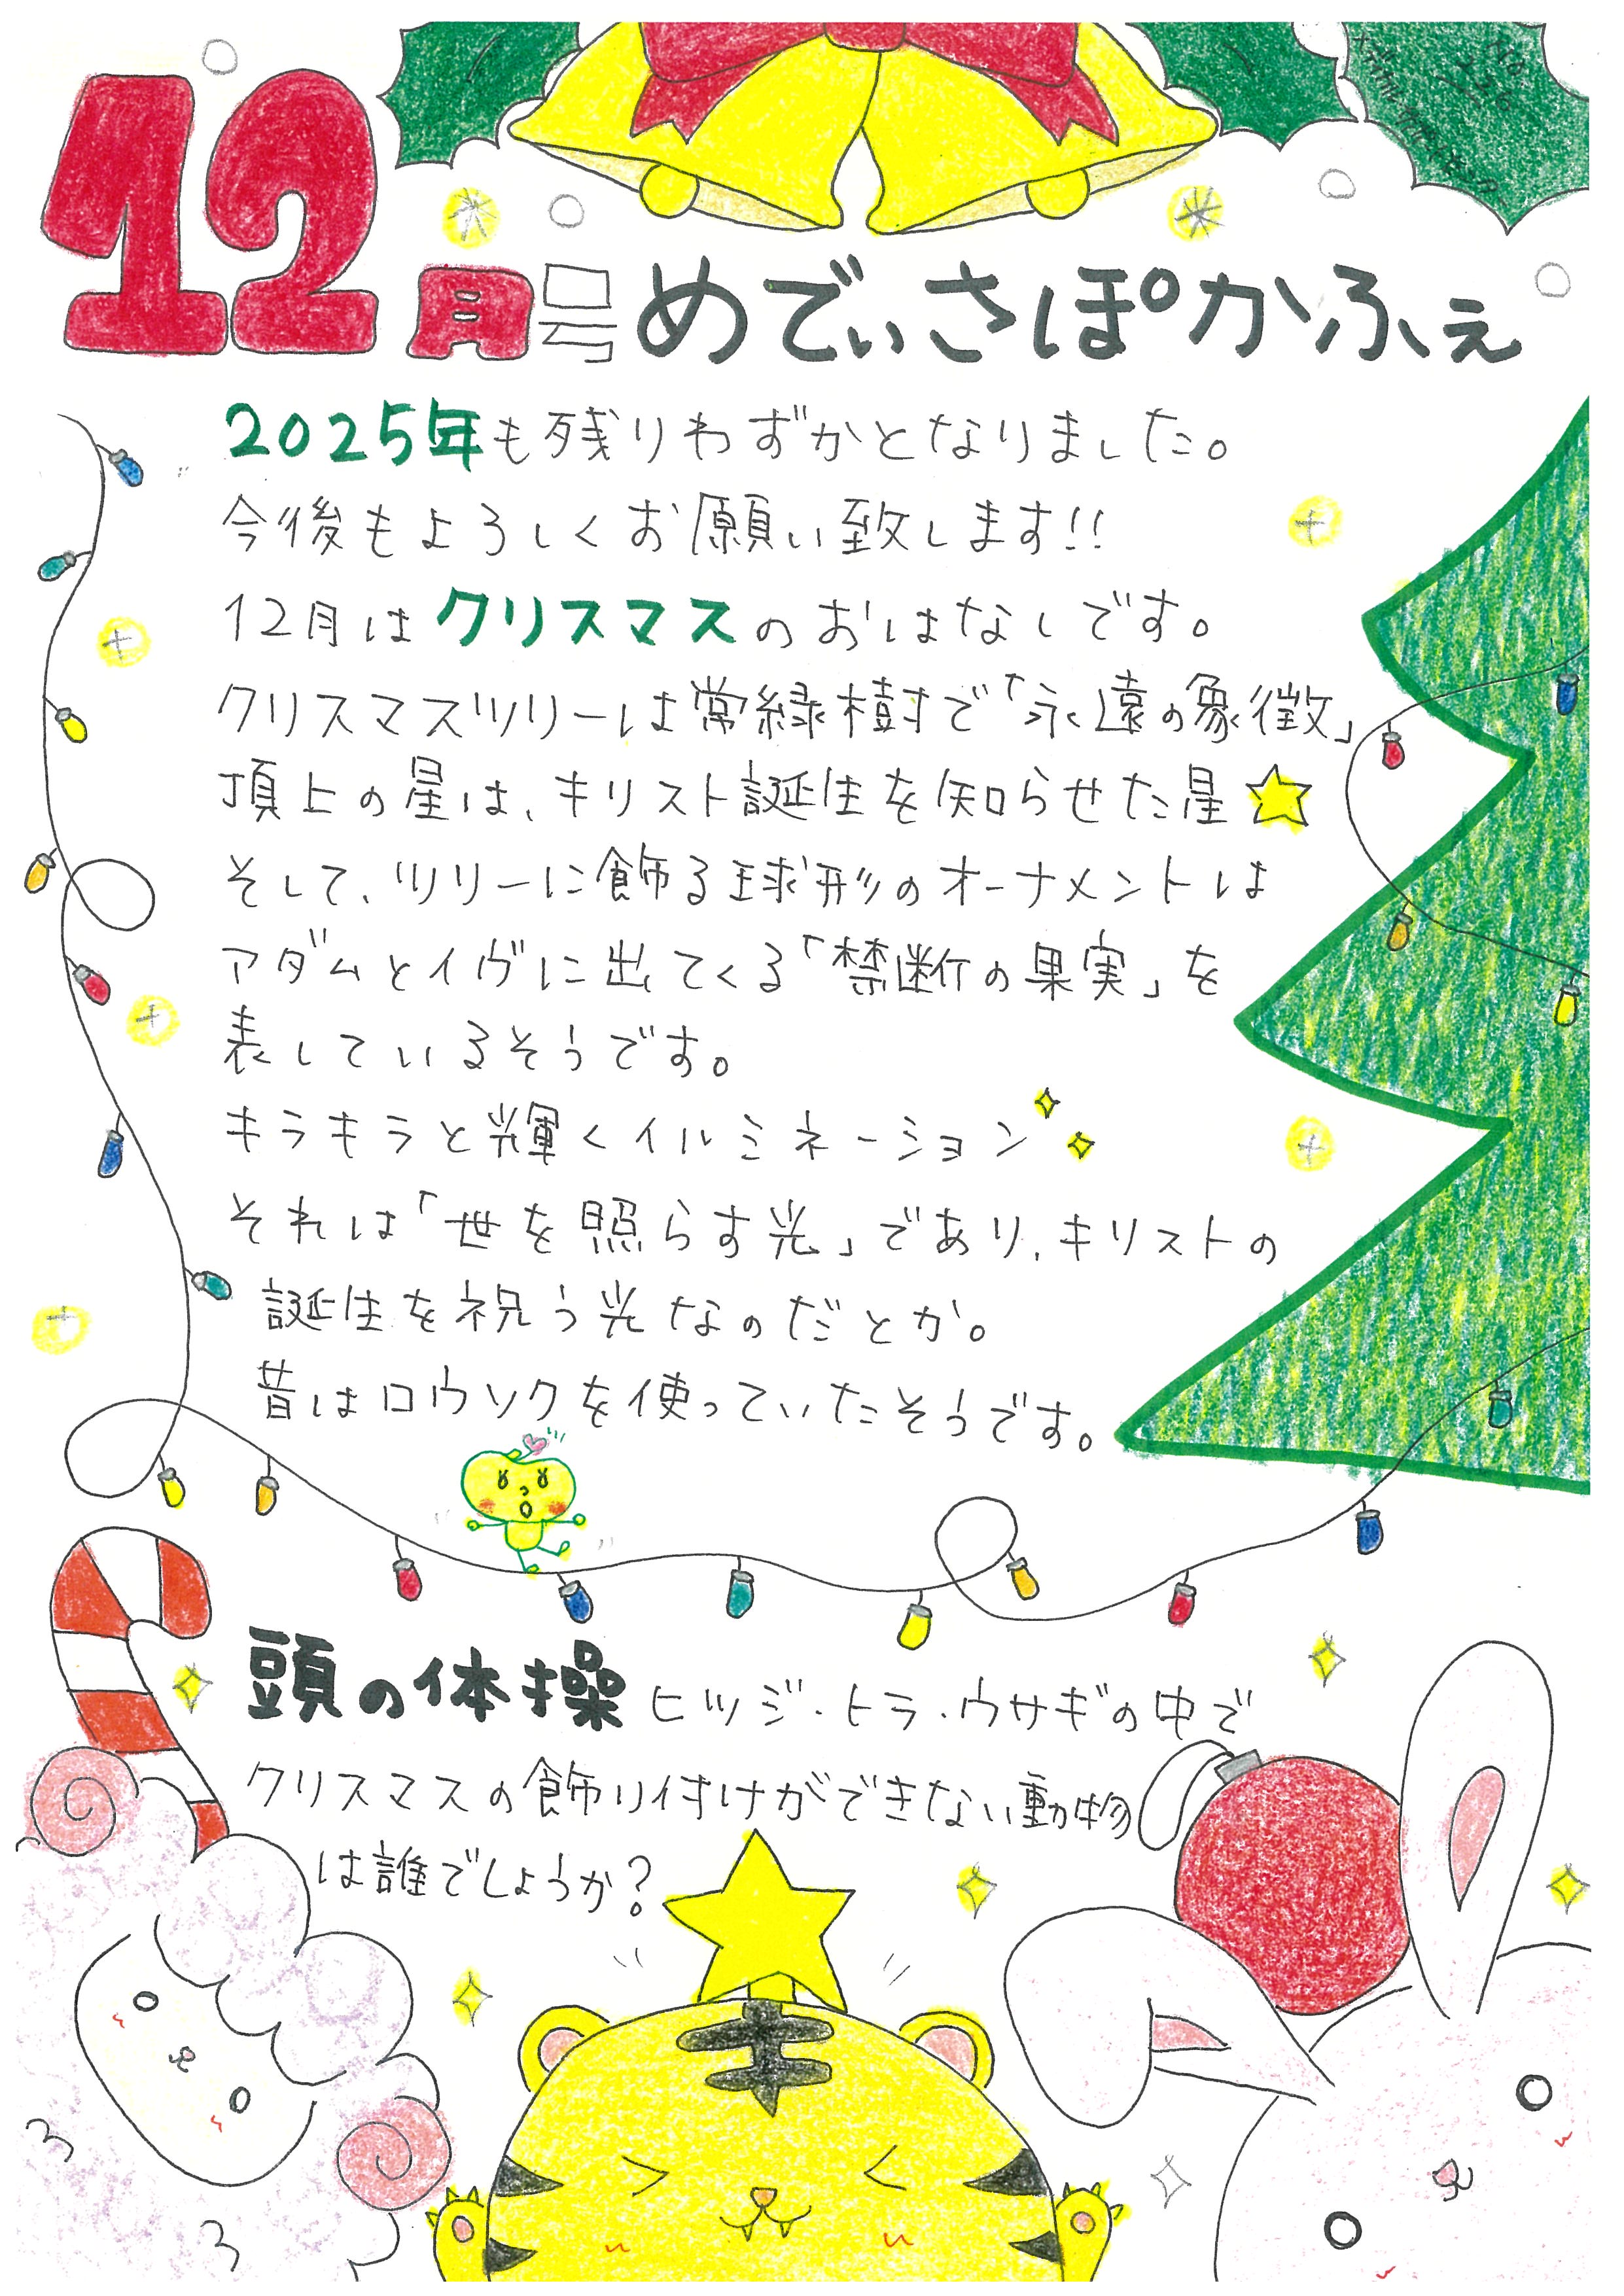 No 236
12月号 めでぃさぽかふぇ
2025年も残りわずかとなりました。
今後もよろしくお願い致します!!
12月はクリスマスのおはなしです。
クリスマスツリーは常緑樹で「永遠の象徴」
頂上の星は、キリスト誕生を知らせた星
そして、ツリーに飾る球形のオーナメントは
アダムとイヴに出てくる「禁断の果実」を
表しているそうです。
キラキラと輝くイルミネーション
それは「世を照らす光」であり、キリストの
誕生を祝う光なのだとか。
昔はロウソクを使っていたそうです。
頭の体操 ヒツジ・トラ・ウサギの中で
クリスマスの飾り付けができない動物
は誰でしょうか?